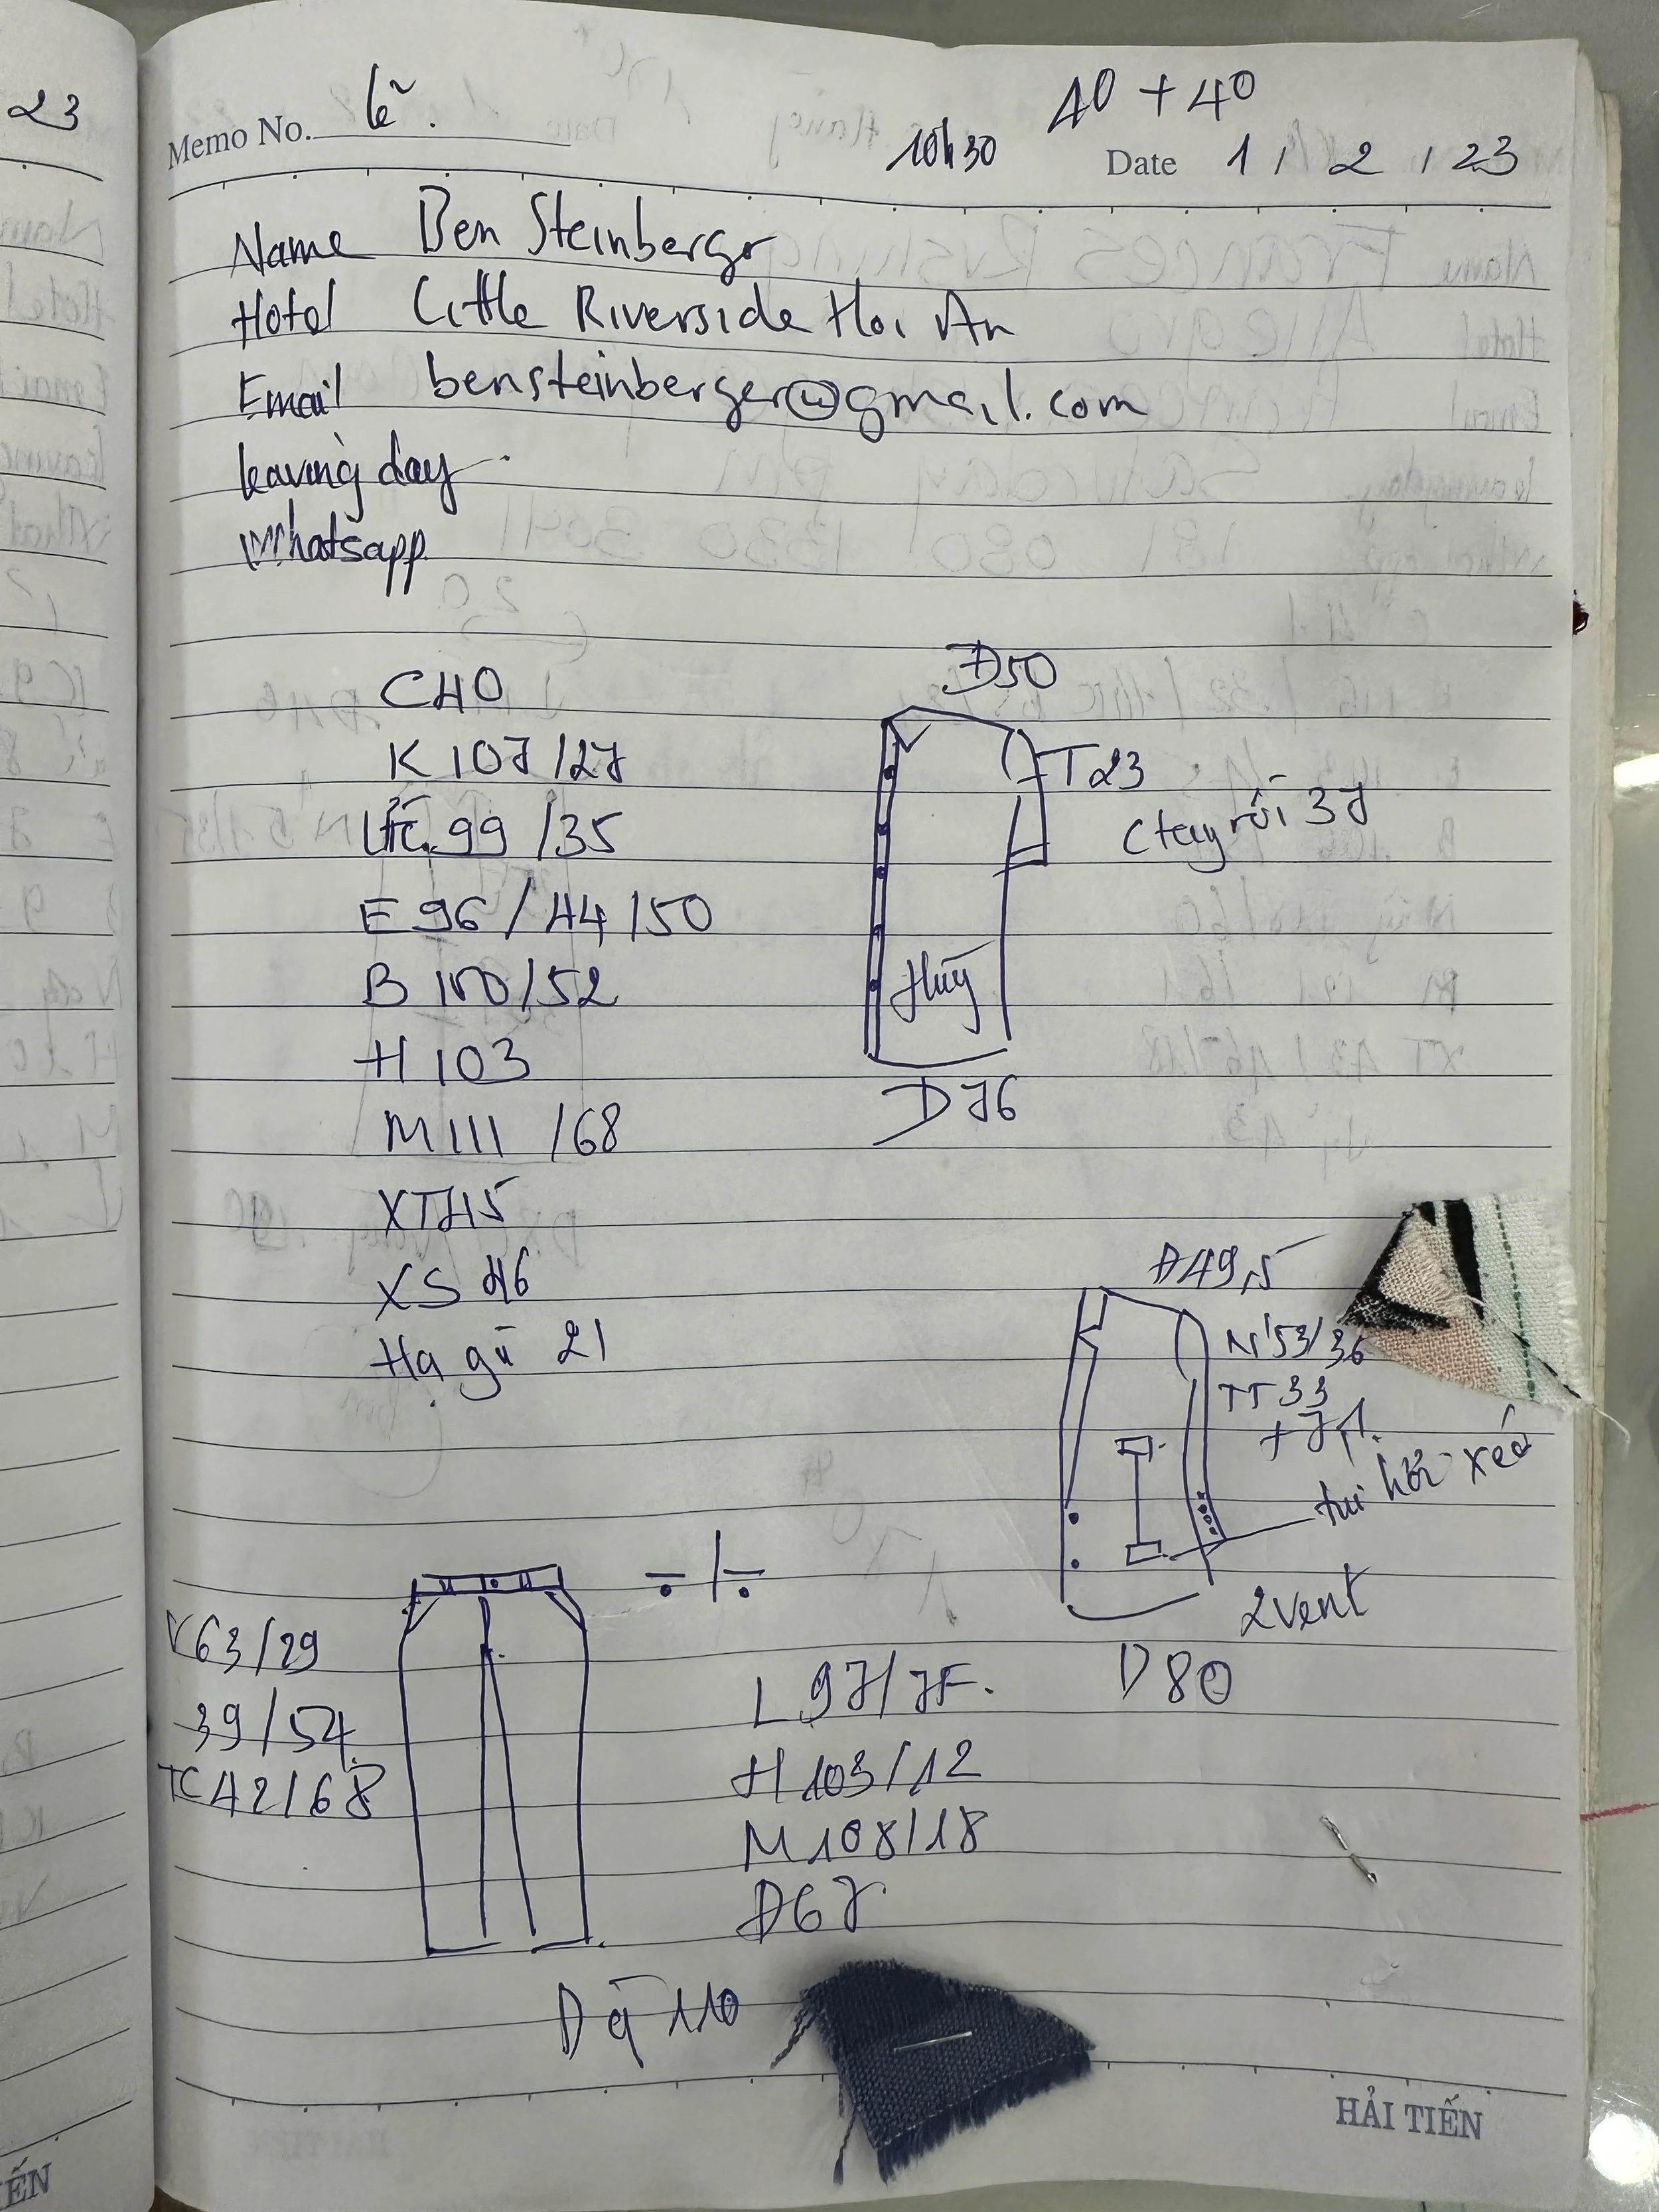 23
Memo No. lẽ.
10h30
40 + 40
Date 1 / 2 / 23
Name Ben Steinberger
Hotel Little Riverside Hoi An
Email bensteinberger@gmail.com
leaving day
Whatsapp
C40
K 107/27
99/35
E 96/44/50
B 100/52
H 103
M 111 /68
XT 45
XS 46
Hạ gù 21
Đ50
T23
Ctay rồi 37
Huỹ
D76
Đ49,5
N'53/36
TT 33
+7
tui hơi xéo
2vent
D80
V63/29
39/54
TC 42/68
÷/÷
L 97/7F.
H 103/12
M 108/18
Đ67
D q 110
HẢI TIẾN